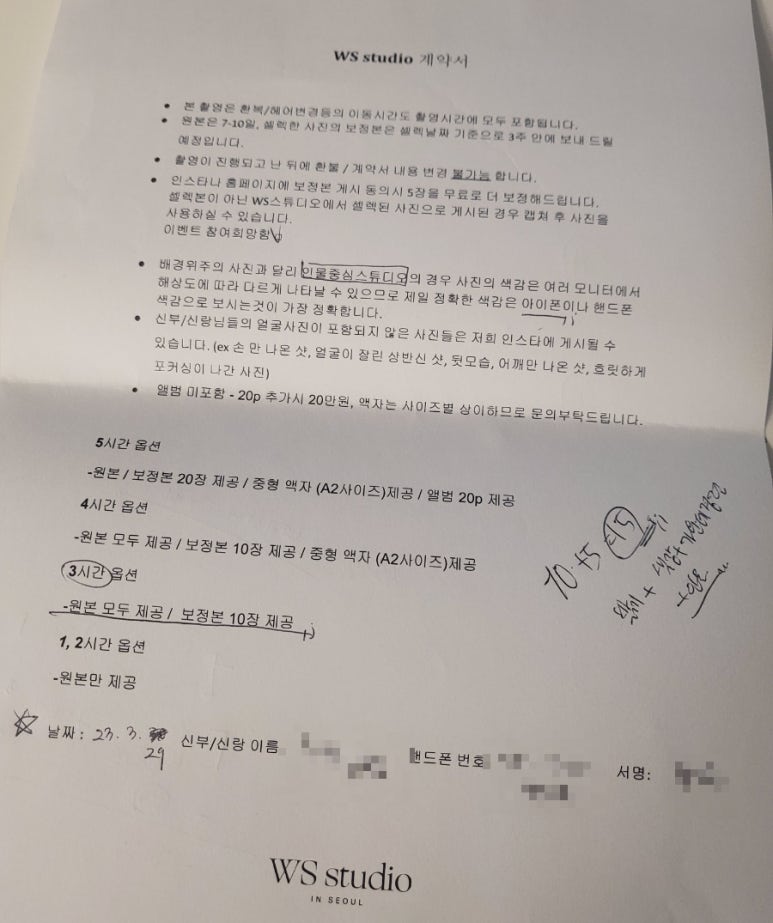 WS studio 계약서
본 촬영은 환복/헤어변경등의 이동시간도 촬영시간에 모두 포함됩니다.
원본은 7-10일, 셀렉한 사진의 보정본은 셀렉날짜 기준으로 3주 안에 보내 드릴
예정입니다.
촬영이 진행되고 난 뒤에 환불 / 계약서 내용 변경 불가능 합니다.
인스타나 홈페이지에 보정본 게시 동의시 5장을 무료로 더 보정해드립니다.
셀렉본이 아닌 WS스튜디오에서 셀렉된 사진으로 게시된 경우 캡쳐 후 사진을
사용하실 수 있습니다.
이벤트 참여희망함
배경위주의 사진과 달리 인물중심스튜디오의 경우 사진의 색감은 여러 모니터에서
해상도에 따라 다르게 나타날 수 있으므로 제일 정확한 색감은 아이폰이나 핸드폰
색감으로 보시는것이 가장 정확합니다.
신부/신랑님들의 얼굴사진이 포함되지 않은 사진들은 저희 인스타에 게시될 수
있습니다. (ex 손 만 나온 샷, 얼굴이 잘린 상반신 샷, 뒷모습, 어깨만 나온 샷, 흐릿하게
포커싱이 나간 사진)
앨범 미포함 - 20p 추가시 20만원, 액자는 사이즈별 상이하므로 문의부탁드립니다.
5시간 옵션
-원본 / 보정본 20장 제공 / 중형 액자 (A2사이즈)제공 / 앨범 20p 제공
4시간 옵션
-원본 모두 제공 / 보정본 10장 제공 / 중형 액자 (A2사이즈)제공
3시간 옵션
-원본 모두 제공 / 보정본 10장 제공
10.+5 =15
1, 2시간 옵션
-원본만 제공
날짜 : 23. 3. 29 신부/신랑 이름 핸드폰 번호 서명:
WS studio
IN SEOUL